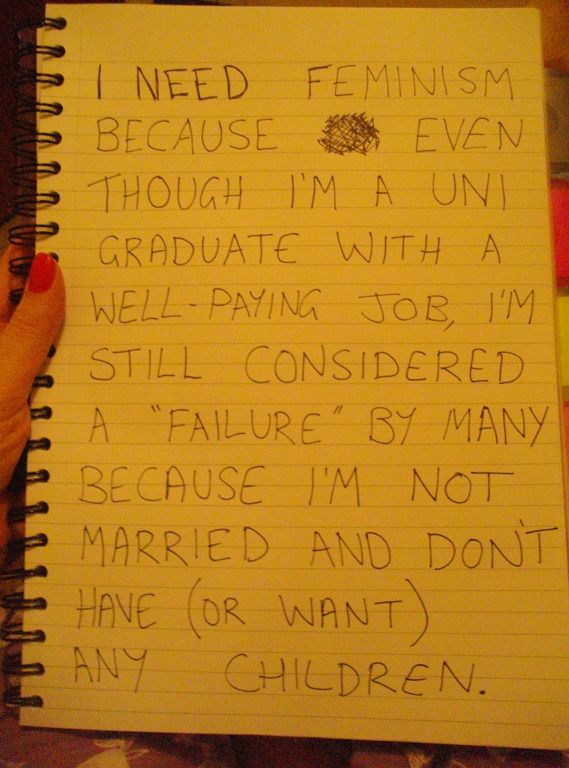 I NEED FEMINISM
BECAUSE EVEN
THOUGH I'M A UNI
GRADUATE WITH A
WELL-PAYING JOB, I'M
STILL CONSIDERED
A "FAILURE" BY MANY
BECAUSE I'M NOT
MARRIED AND DON'T
HAVE (OR WANT)
ANY CHILDREN.